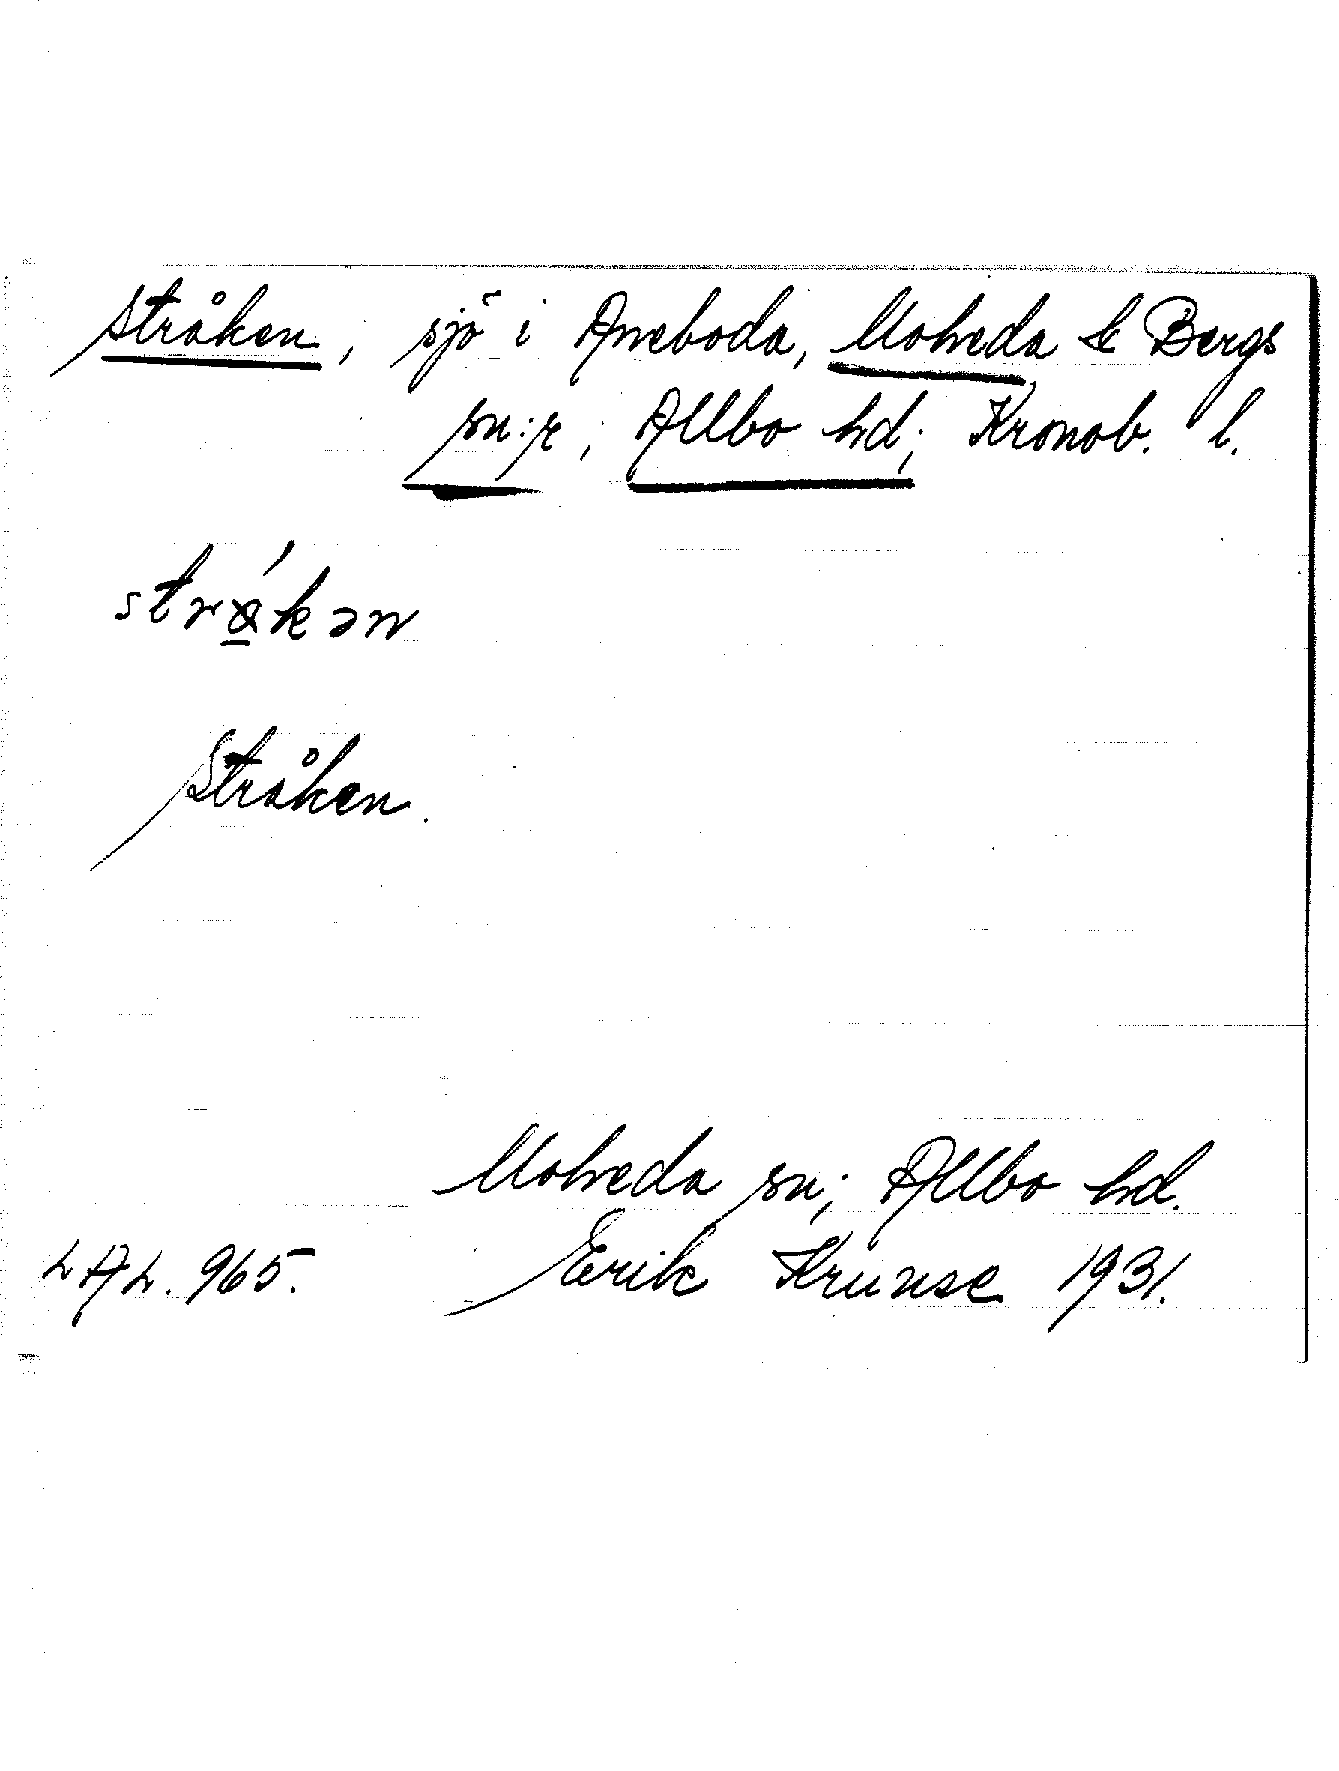 Stråken, sjö i Aneboda, Moheda & Bergs
sn:r, Allbo hd; Kronob. l.
strά̱kən
Stråken.
Moheda sn; Allbo hd.
LAL. 965. Erik Krunse 1931.